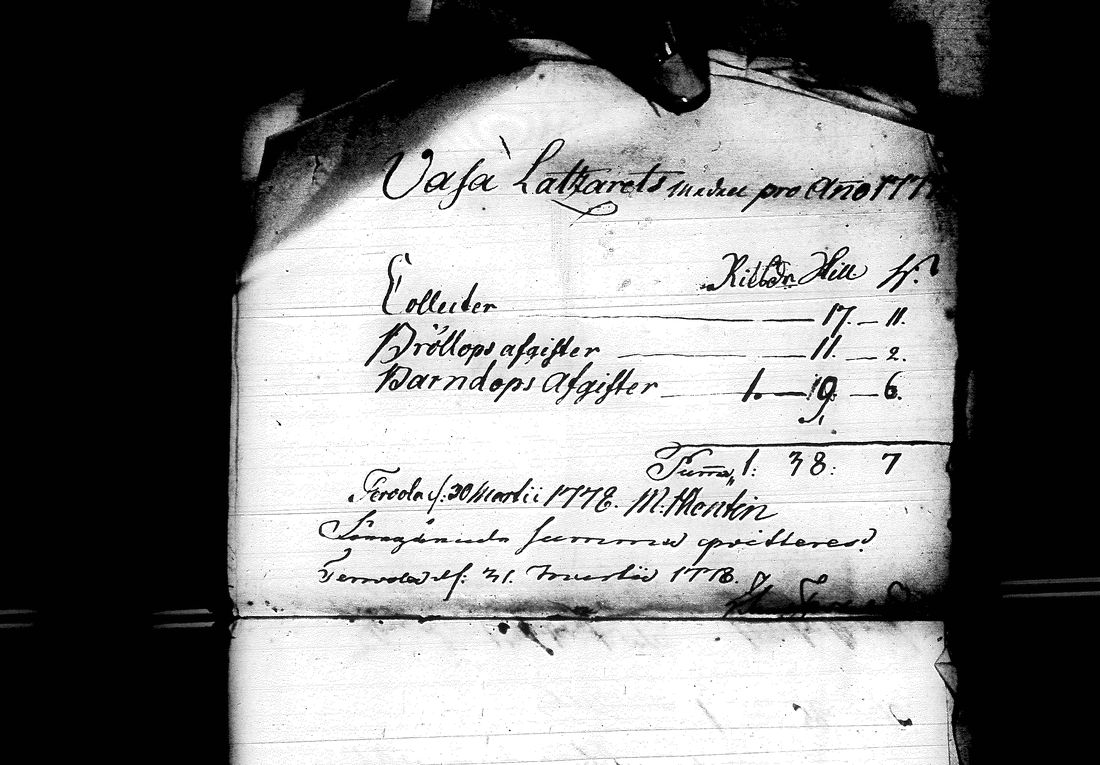 Vasa Latzarets medel pro Año 177
Riksdr. Skill r.
Collecter — 17. — 11.
Bröllops afgifter — 11. — 2.
Barndops Afgifter 1. — 19. — 6.
Summa 1: 38: 7
Tervola d: 30 Martii 1778. M: Montin
summa qvitteres.
Tervola d: 31. Martii 1778.